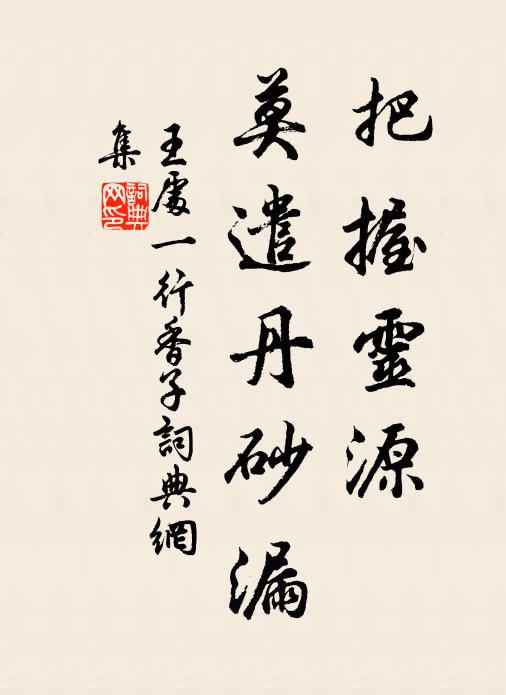 把握靈源
莫遣丹砂漏
王處一行香子詞典網
集
詞典网印